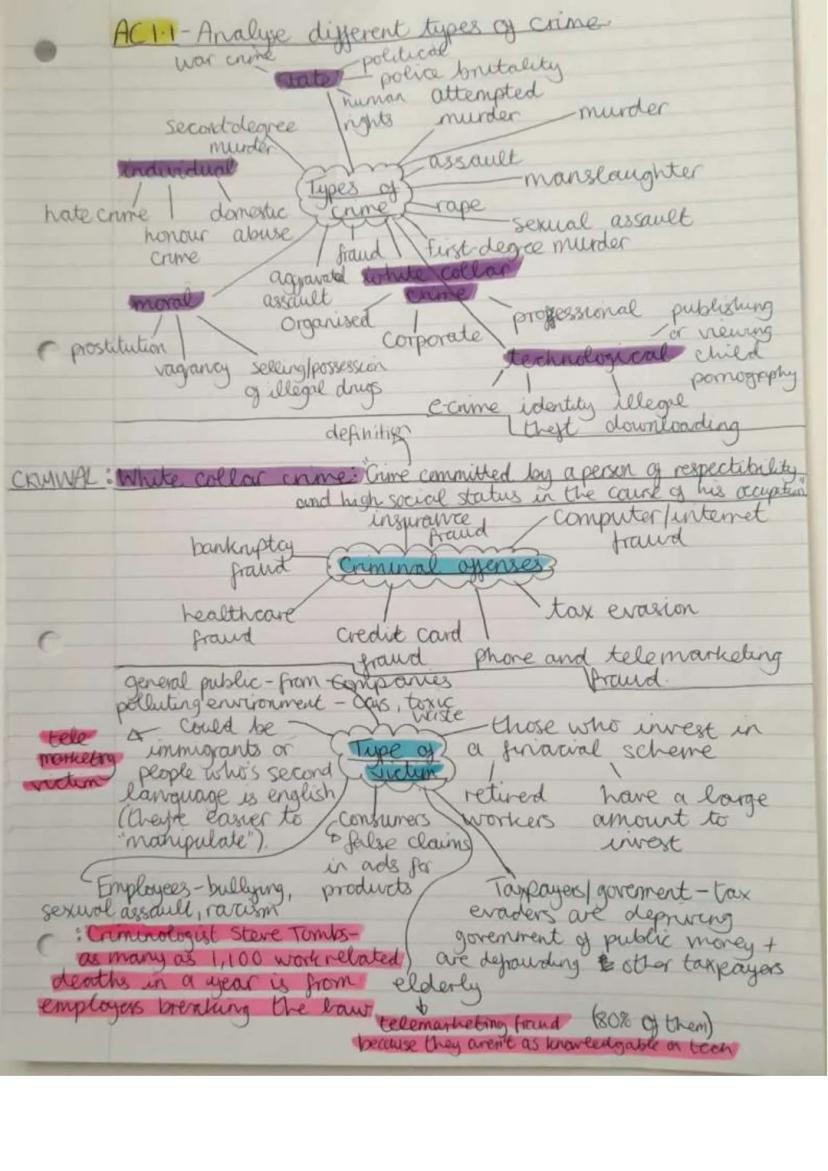 AC1.1 - Analyse different types of crime
war crime
political
state
police brutality
human rights
attempted murder
murder
second-degree murder
assault
individual
Types of crime
manslaughter
hate crime
honour crime
domestic abuse
rape
sexual assault
fraud
first-degree murder
aggravated assault
white collar crime
moral
Organised
Corporate
professional
publishing or viewing child pornography
prostitution
vagancy
selling/possession of illegal drugs
technological
e-crime
identity theft
illegal downloading
definition
CRIMINAL: White collar crime: "Crime committed by a person of respectibility
and high social status in the course of his occuption"
insurance fraud
computer/internet fraud
bankruptcy fraud
Criminal offenses
healthcare fraud
credit card fraud
tax evasion
phone and telemarketing fraud.
general public - from companies
polluting environment - cars, toxic waste
tele marketing victim
could be
immigrants or
people who's second
language is english
(they're easier to
"manipulate").
Type of victim
those who invest in
a finacial scheme
retired workers
have a large
amount to
invest
consumers
false claims
in ads for
products
Employees - bullying,
sexual assault, racism
: Criminologist Steve Tombs -
as many as 1,100 work related
deaths in a year is from
employers breaking the law
Taxpayers/goverment - tax
evaders are depriving
goverment of public money +
are defrauding other taxpayers
elderly
telemarketing fraud (80% of them)
because they aren't as knowledgable on tech